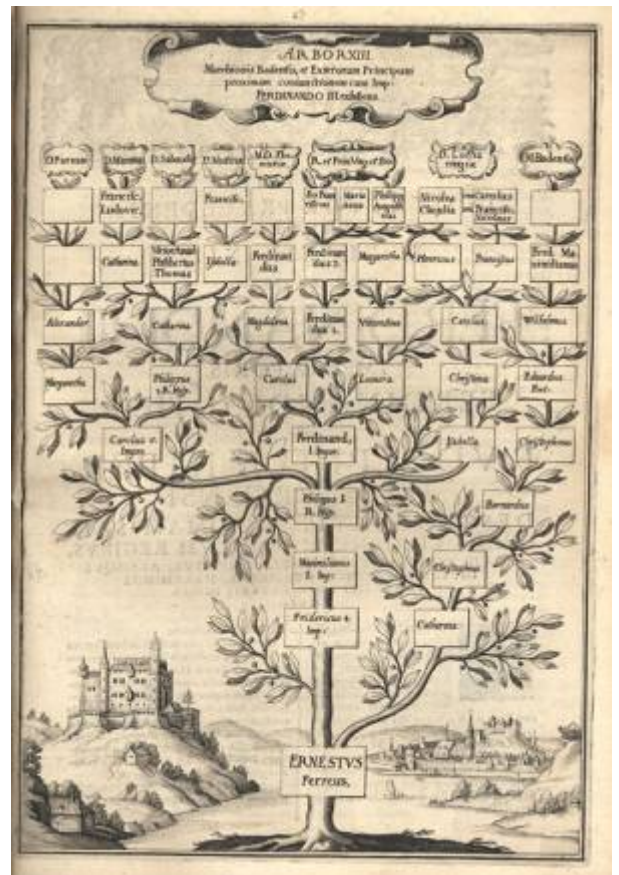 47
ARBOR XIII
Marchionis Badensis, et Exterorum Principum
proximam consanguinitatem cum Imp:
FERDINANDO III exhibens
D. Parmae
D. Mutinae
B. Lotha
ringiae
M. Badensis
Francisc.
Ludovic.
Francisc.
Maria
Anna
Philipp
Nicolea
Claudia
Carolus
Francisc.
Nicolaus
Catharina
Philibertus
Thomas
Isabella
Ferdinan
dus
Ferdinan
dus 2.
Margaretha
Henricus
Franciscus
Ferd. Ma
ximilianus
Alexander
Catharina
Magdalena
Ferdinan
dus 2.
Vincentius
Carolus
Wilhelmus
Margaretha
Philippus
2. R. Hisp.
Carolus
Leonora
Christina
Eduardus
Fort.
Carolus V.
Imper.
Ferdinand,
I. Imper.
Isabella
Christophorus
Philippus I
R. Hisp.
Bernardus
Maximilianus
I. Imp:
Christophorus
Fridericus 4
Imp:
Catharina
ERNESTVS
Ferreus,